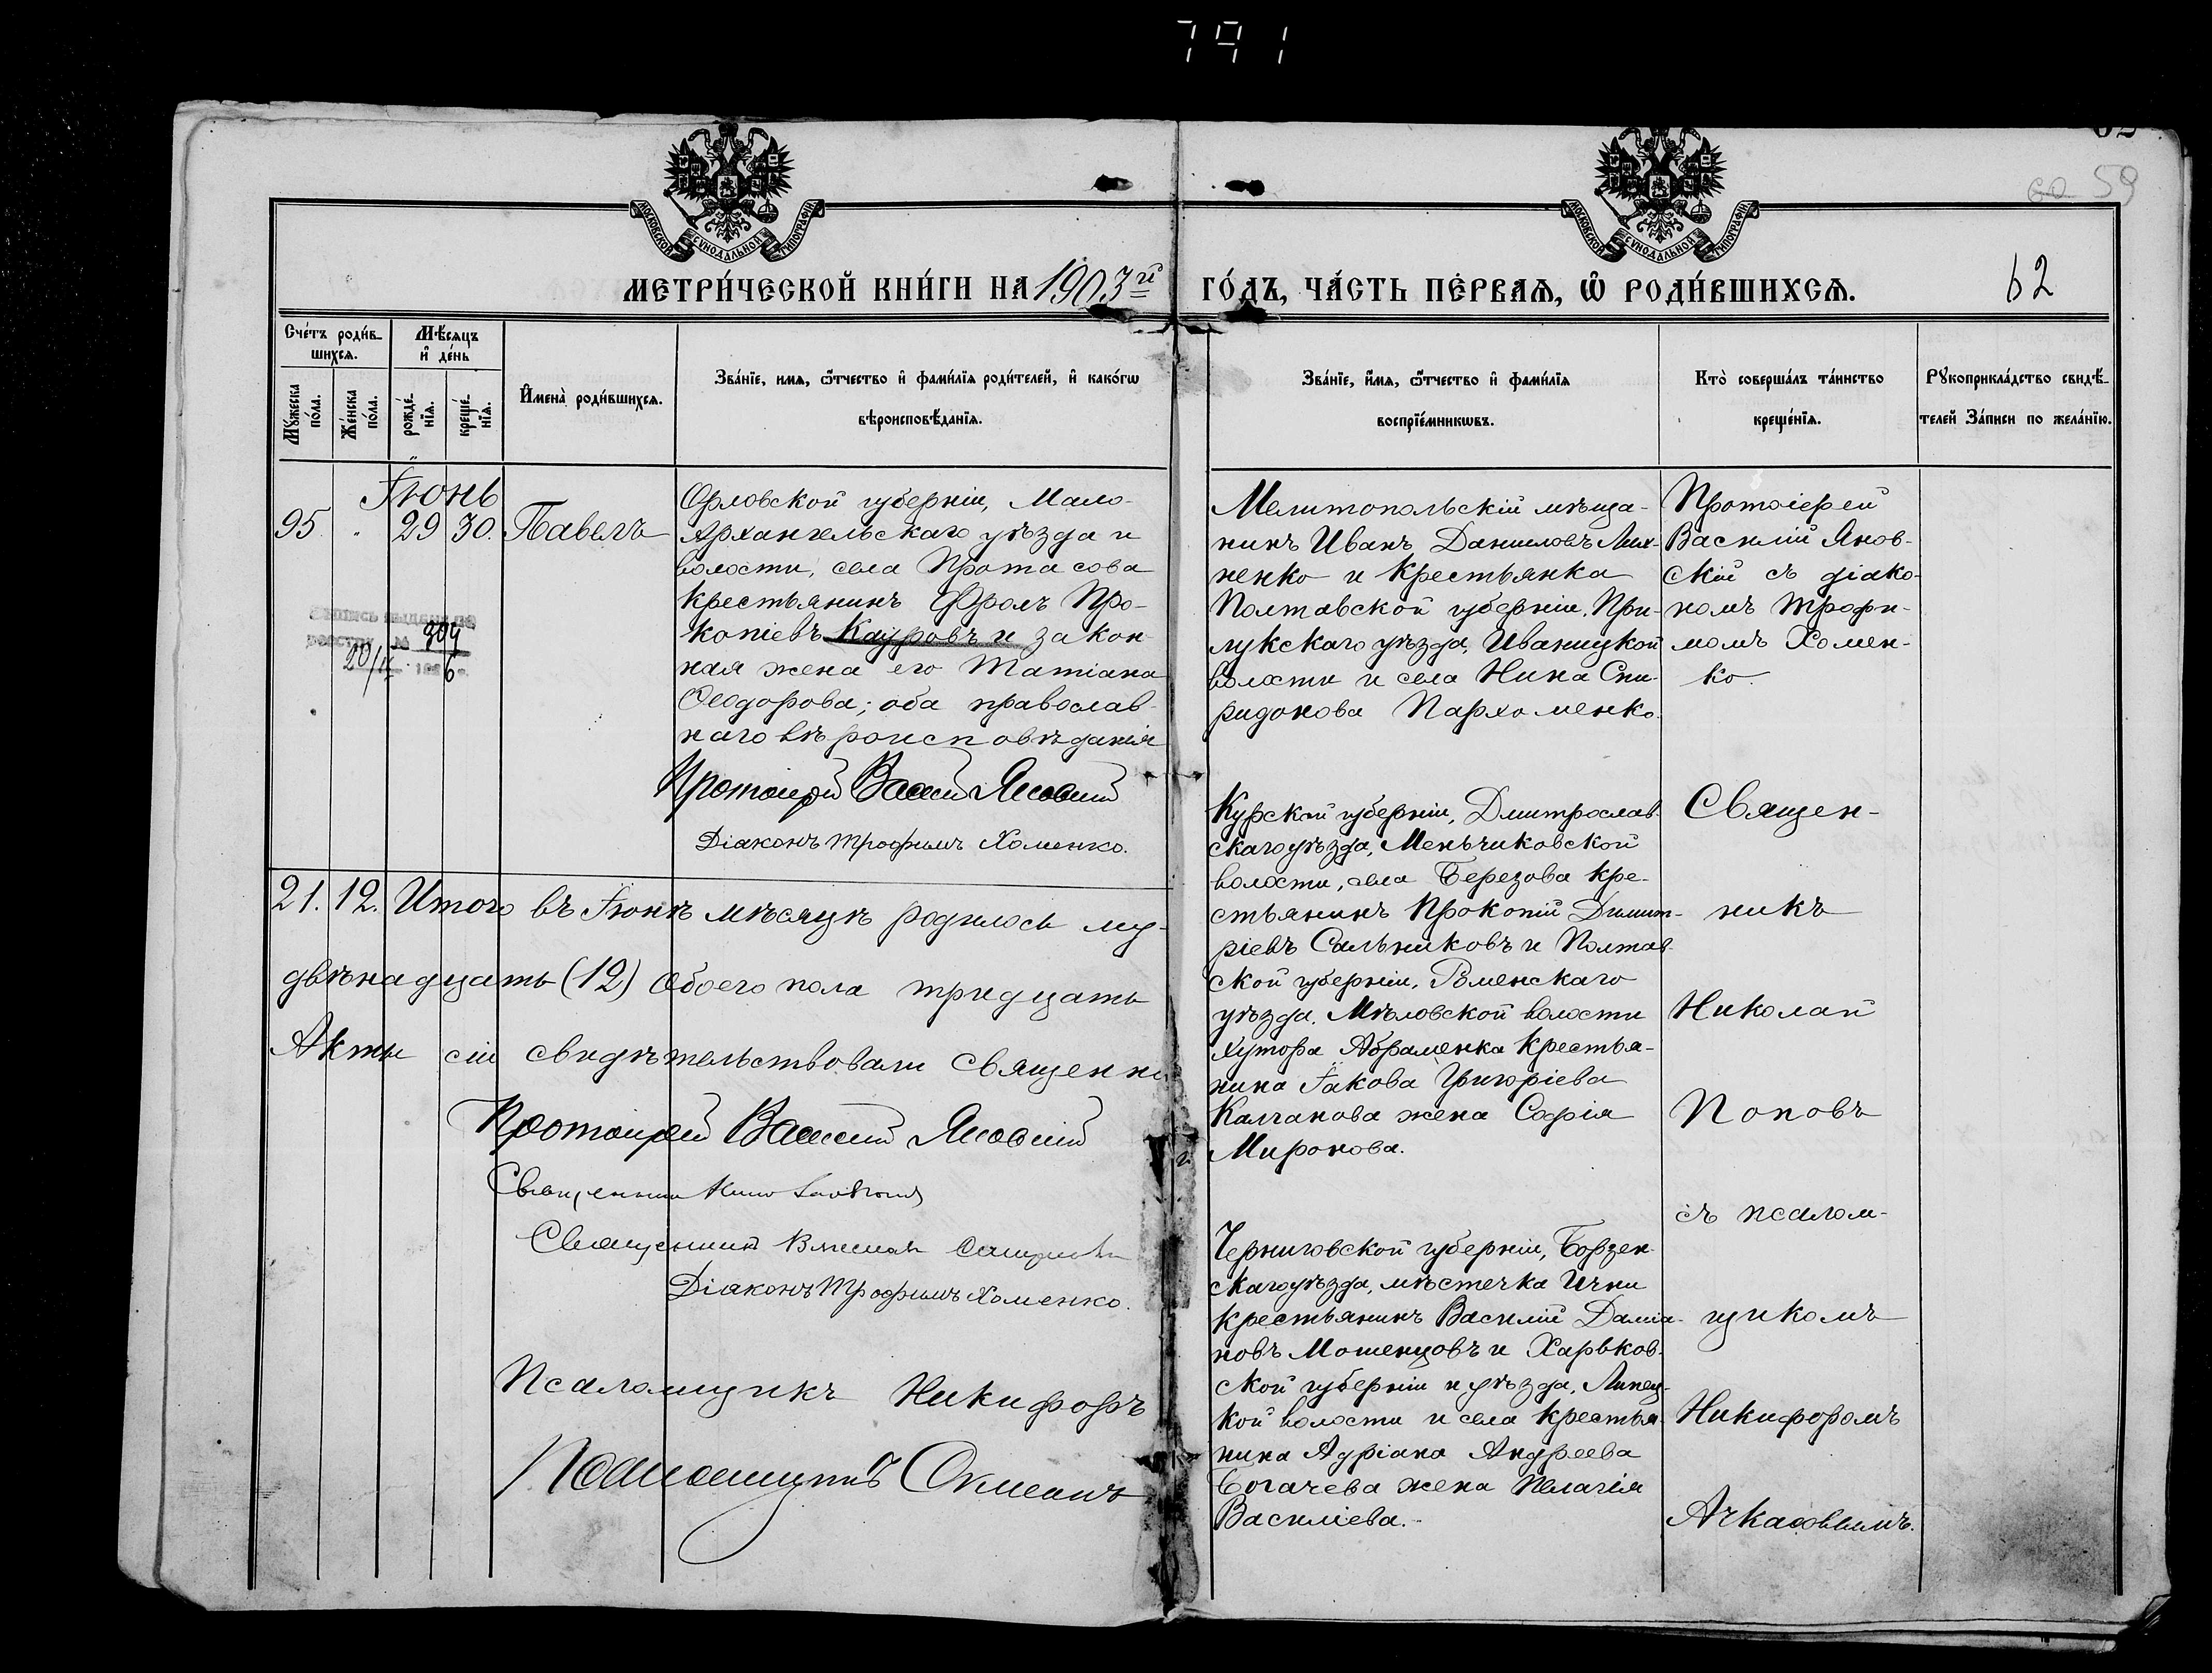 791
59
62
МОСКОВСКОЙ СѴНОДАЛЬНОЙ ТИПОГРАФІИ
МОСКОВСКОЙ СѴНОДАЛЬНОЙ ТИПОГРАФІИ
МЕТРИ́ЧЕСКОЙ КНИ́ГИ НА 1903й
ГО́ДЪ, ЧА́СТЬ ПЕ́РВАѦ, Ѿ РОДИ́ВШИХСѦ.
Сче́тъ роди́в-
шихсѧ.
Мѣ́сѧцъ
и҆ де́нь
Мꙋ́жеска
по́ла.
Же́нска
по́ла.
рожде́-
нїѧ.
креще́-
нїѧ.
И҆мена̀ роди́вшихсѧ.
Зва́нїе, имѧ, ѻ҆́тчество и҆ фами́лїѧ роди́телей, и҆ како́гѡ
вѣроисповѣ́данїѧ.
Зва́нїе, и҆́мѧ, ѻ҆́тчество и҆ фами́лїѧ
воспрїе́мникѡвъ.
Кто̀ соверша́лъ та́инство
креще́нїѧ.
Рꙋкоприкла́дство свидѣ́-
телей За́писи по жела́нїю.
Іюнь
95. " 29 30. Павелъ
Орловской губерніи, Мало-
Архангельскаго уѣзда и
волости, села Протасова
крестьянинъ Фролъ Про-
копіевъ Кауровъ и закон-
ная жена его Татіана
Ѳеодорова; оба православ-
наго вѣроисповѣданія
Протоіерей Василій Яновскій
Діаконъ Трофимъ Хоменко.
Мелитопольскій мѣща-
нинъ Иванъ Даниловъ Лих-
ненко и крестьянка
Полтавской губерніи, При-
лукскаго уѣзда, Иваницкой
волости и села Нина Спи-
ридонова Пархоменко.
Протоіерей
Василій Янов-
скій съ діако-
номъ Трофи-
момъ Хомен-
ко.
21. 12. Итого въ Іюнѣ мѣсяцѣ родилось му-
двѣнадцать (12) обоего пола тридцать
Акты сіи свидѣтельствовали священни
Протоіерей Василій Яновскій
Священникъ
Священникъ
Діаконъ Трофимъ Хоменко.
Псаломщикъ Никифоръ
Псаломщикъ
Курской губерніи, Дмитрослав-
скаго уѣзда, Меньчиковской
волости, села Березова кре-
стьянинъ Прокопій Димит-
ріевъ Сальниковъ и Полтав-
ской губерніи, Роменскаго
уѣзда, Мѣловской волости
хутора Абраменка крестья-
нина Іакова Григоріева
Калчанова жена Софія
Миронова.
Черниговской губерніи, Борзен-
скаго уѣзда, мѣстечка Ични
крестьянинъ Василій Даміа-
новъ Мошенцовъ и Харьков-
ской губерніи и уѣзда, Липец-
кой волости и села крестья-
нина Адріана Андреева
Богачева жена Пелагія
Василіева.
Священ-
никъ
Николай
Поповъ
съ псалом-
щикомъ
Никифоромъ
Ачкасовымъ.